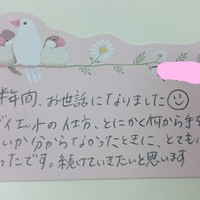 半年間、お世話になりました
ダイエットの仕方、とにかく何から手を
いいか分からなかったときに、とても
ったです。続けていきたいと思います